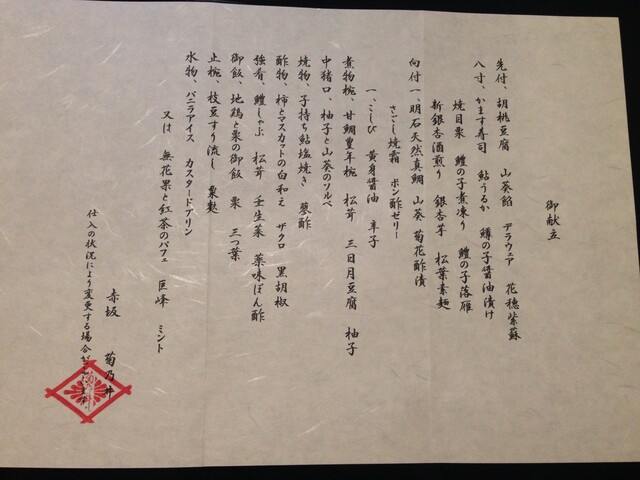 御献立
先付、胡桃豆腐 山葵餡 デラウェア 花穂紫蘇
八寸、かます寿司 鮎うるか 鱒の子醤油漬け
焼目栗 鱧の子煮凍り 鱧の子落雁
新銀杏酒煎り 銀杏芋 松葉素麺
向付一 明石天然真鯛 山葵 菊花酢漬
さごし焼霜 ポン酢ゼリー
一、こしび 黄身醤油 辛子
煮物椀、甘鯛豊年椀 松茸 三日月豆腐 柚子
中猪口、柚子と山葵のソルベ
焼物、子持ち鮎塩焼き 蓼酢
酢物、柿とマスカットの白和え ザクロ 黒胡椒
強肴、鱧しゃぶ 松茸 壬生菜 薬味ぽん酢
御飯、地鶏と栗の御飯 栗 三つ葉
止椀、枝豆すり流し 粟麩
水物、バニラアイス カスタードプリン
又は 無花果と紅茶のパフェ 巨峰 ミント
赤坂 菊乃井
仕入の状況により変更する場合が